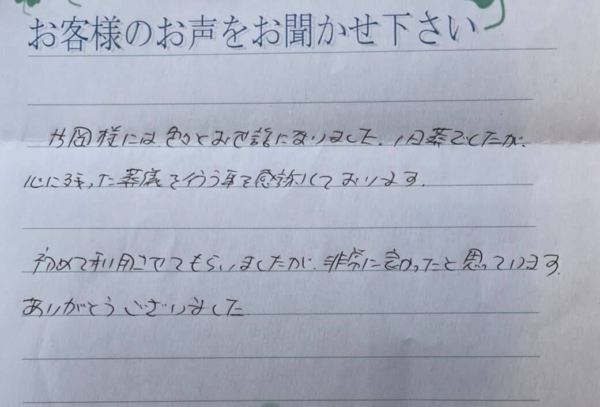 お客様のお声をお聞かせ下さい
片岡様には色々とお世話になりました。1日葬でしたが、
心に残った葬儀を行う事を感謝しております。
初めて利用させてもらいましたが、非常に良かったと思っています。
ありがとうございました